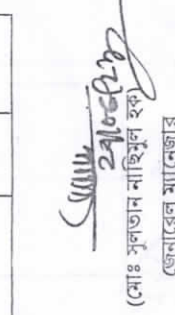 ২৭/০৫/২১
(মোঃ সুলতান নাছিমুল হক)
জেনারেল ম্যানেজার